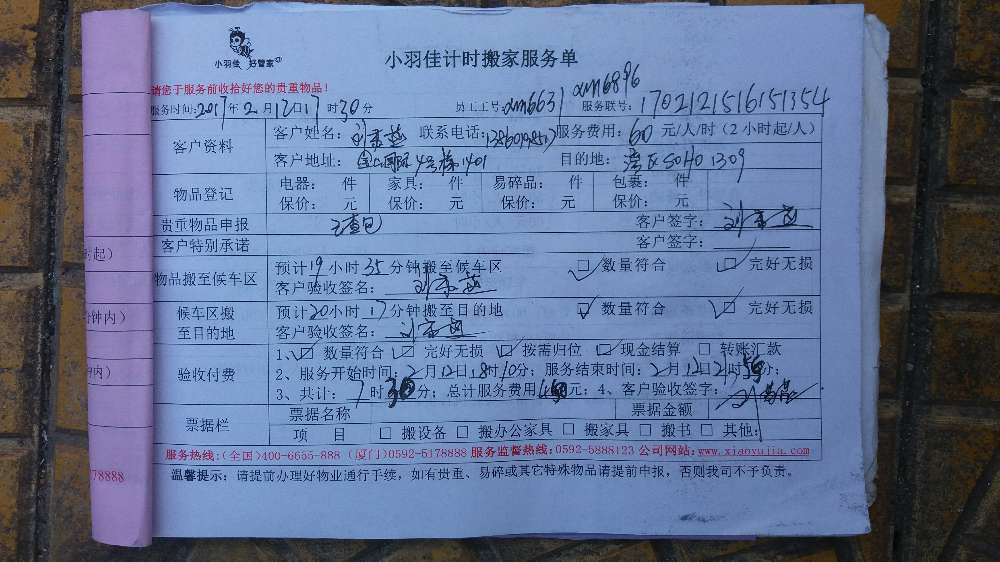 小羽佳 好管家
小羽佳计时搬家服务单
请您于服务前收拾好您的贵重物品!
服务时间: 2017年2月12日17时30分 员工工号 xm6631 xm6896 服务联号: 1702121516151354
客户资料 客户姓名: 联系电话: 服务费用: 60 元/人/时(2小时起/人)
客户地址: 4号栋1401 目的地: 湾区SOHO 1309
物品登记 电器: 件 家具: 件 易碎品: 件 包裹: 件
保价: 元 保价: 元 保价: 元 保价: 元
贵重物品申报 客户签字:
客户特别承诺 客户签字:
物品搬至候车区 预计19小时35分钟搬至候车区 ☑数量符合 ☑完好无损
客户验收签名:
候车区搬至目的地 预计20小时17分钟搬至目的地 ☑数量符合 ☑完好无损
客户验收签名:
验收付费 1、☑数量符合 ☑完好无损 ☑按需归位 ☑现金结算 □转账汇款
2、服务开始时间: 2月12日18时10分; 服务结束时间: 2月12日21时55分;
3、共计: 7时30分; 总计服务费用450元; 4、客户验收签字:
票据栏 票据名称 票据金额
项 目 □搬设备 □搬办公家具 □搬家具 □搬书 □其他:
服务热线:(全国)400-6655-888 (厦门)0592-5178888 服务监督热线:0592-5888123 公司网站:www.xiaoyujia.com
温馨提示: 请提前办理好物业通行手续, 如有贵重、易碎或其它特殊物品请提前申报, 否则我司不予负责。
时起)
钟内)
内)
178888